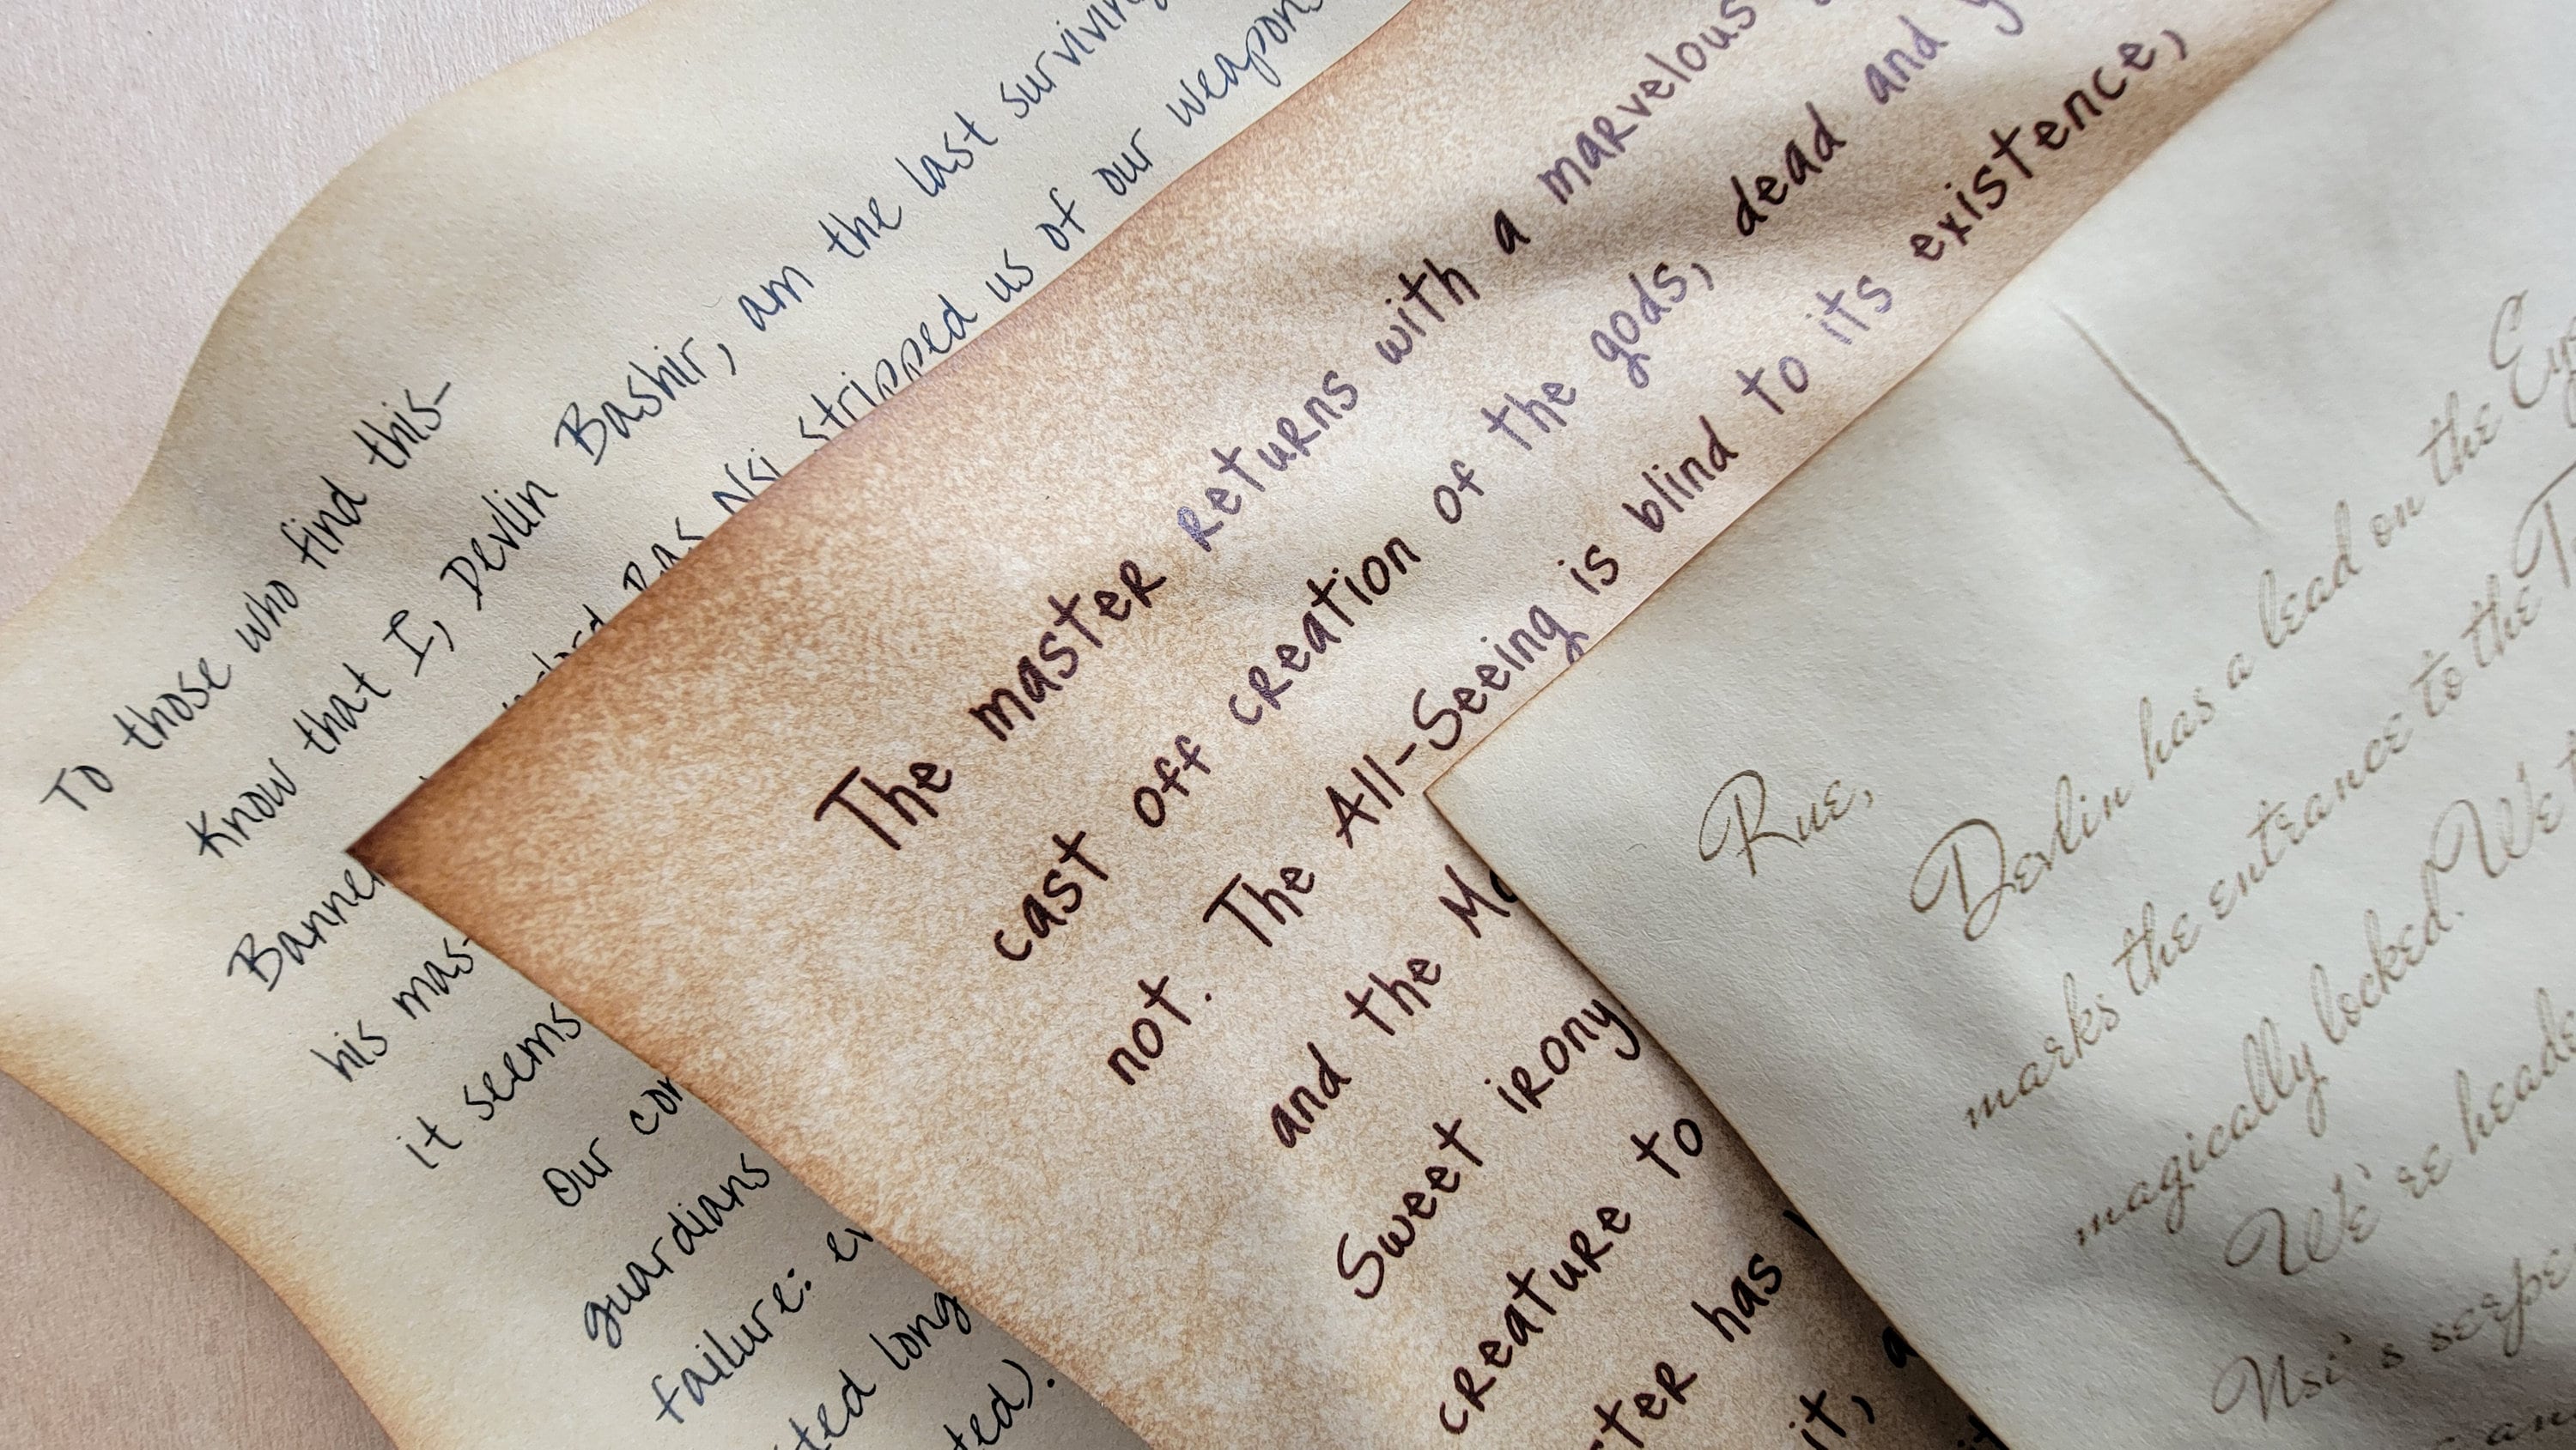 To those who find this-
Know that I, Devlin Bashir, am the last surviving
Ras Nsi stripped us of our weapon
Banne
his mas-
it seems
Our con
guardians
failure: e
ted long
ted).
The master returns with a marvelous
cast off creation of the gods, dead and y
not. The All-Seeing is blind to its existence,
and the M
Sweet irony
creature to
ster has
it, a
Rue,
Devlin has a lead on the Ey
marks the entrance to the T
magically locked. We t
We're heade
Nsi's serpe
an